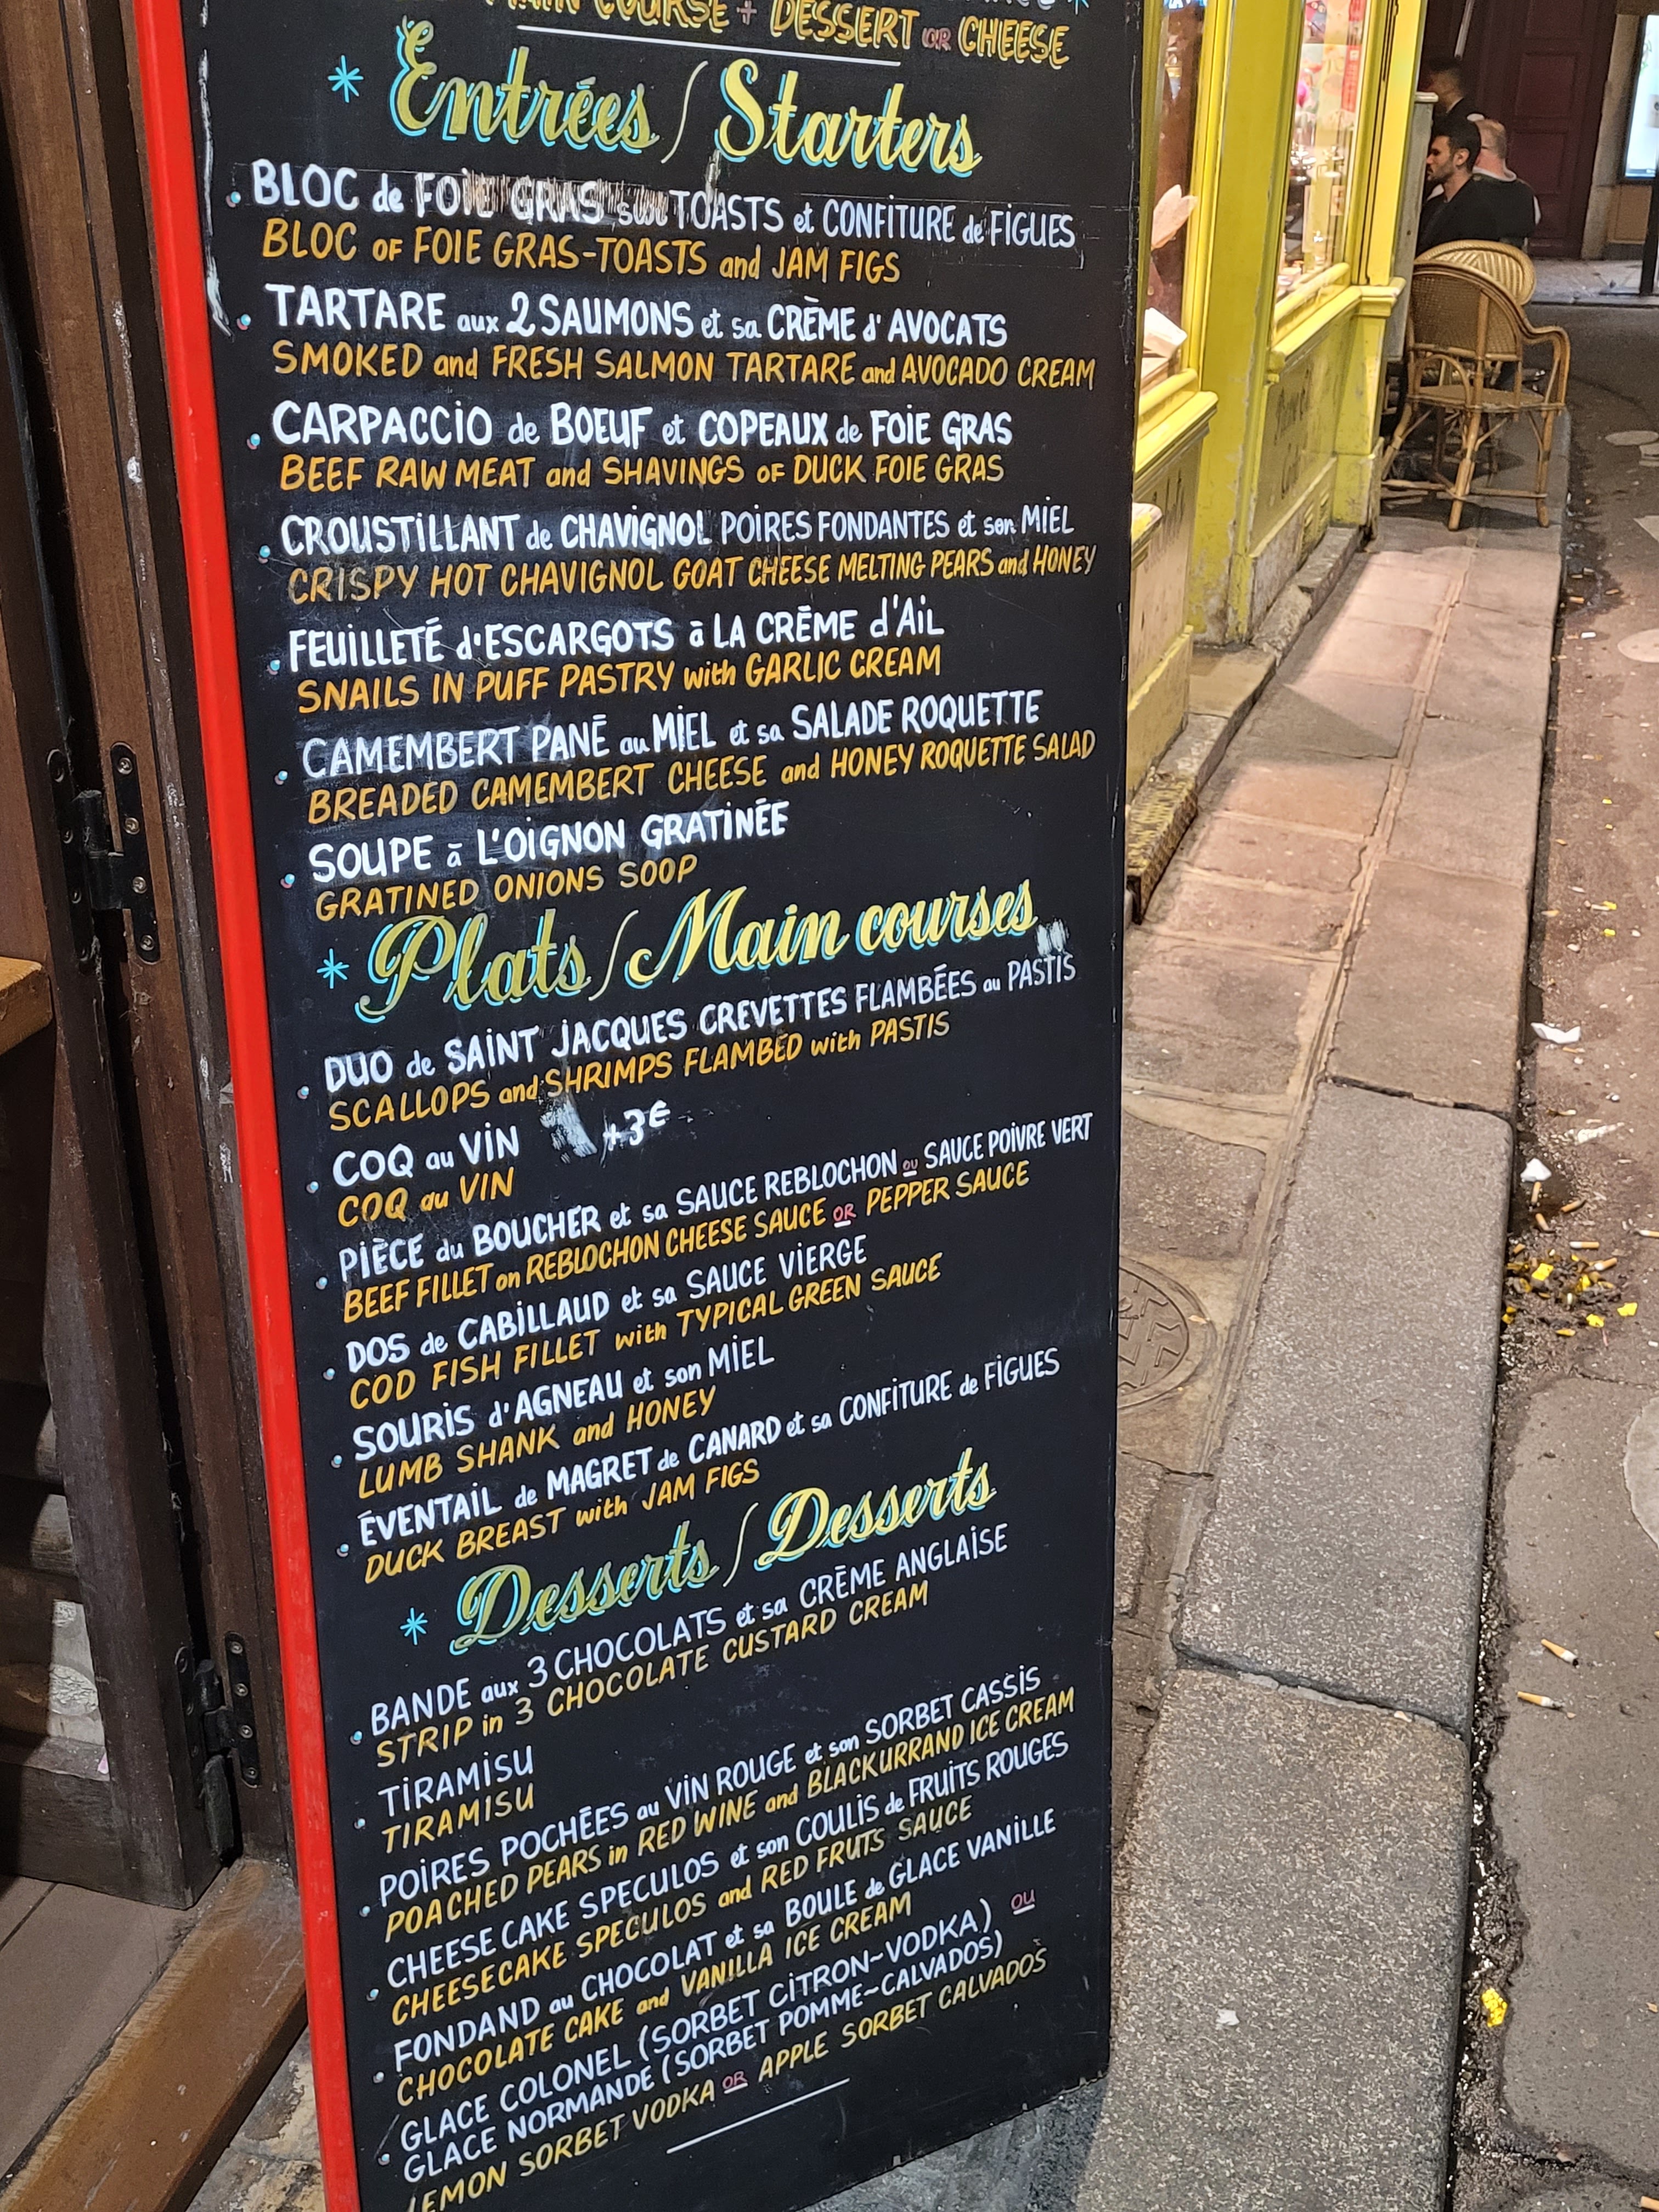 MAIN COURSE + DESSERT OR CHEESE
Entrées / Starters
BLOC de FOIE GRAS sur TOASTS et CONFITURE de FIGUES
BLOC OF FOIE GRAS-TOASTS and JAM FIGS
TARTARE aux 2 SAUMONS et sa CRÈME d'AVOCATS
SMOKED and FRESH SALMON TARTARE and AVOCADO CREAM
CARPACCIO de BOEUF et COPEAUX de FOIE GRAS
BEEF RAW MEAT and SHAVINGS OF DUCK FOIE GRAS
CROUSTILLANT de CHAVIGNOL POIRES FONDANTES et son MIEL
CRISPY HOT CHAVIGNOL GOAT CHEESE MELTING PEARS and HONEY
FEUILLETÉ d'ESCARGOTS à LA CRÈME d'AIL
SNAILS IN PUFF PASTRY with GARLIC CREAM
CAMEMBERT PANÉ au MIEL et sa SALADE ROQUETTE
BREADED CAMEMBERT CHEESE and HONEY ROQUETTE SALAD
SOUPE à L'OIGNON GRATINÉE
GRATINED ONIONS SOOP
Plats / Main courses
DUO de SAINT JACQUES CREVETTES FLAMBÉES au PASTIS
SCALLOPS and SHRIMPS FLAMBED with PASTIS
+3€
COQ au VIN
COQ au VIN
PIÈCE du BOUCHER et sa SAUCE REBLOCHON ou SAUCE POIVRE VERT
BEEF FILLET on REBLOCHON CHEESE SAUCE OR PEPPER SAUCE
DOS de CABILLAUD et sa SAUCE VIERGE
COD FISH FILLET with TYPICAL GREEN SAUCE
SOURIS d'AGNEAU et son MIEL
LUMB SHANK and HONEY
ÉVENTAIL de MAGRET de CANARD et sa CONFITURE de FIGUES
DUCK BREAST with JAM FIGS
Desserts / Desserts
BANDE aux 3 CHOCOLATS et sa CRÈME ANGLAISE
STRIP in 3 CHOCOLATE CUSTARD CREAM
TIRAMISU
TIRAMISU
POIRES POCHÉES au VIN ROUGE et son SORBET CASSIS
POACHED PEARS in RED WINE and BLACKURRAND ICE CREAM
CHEESE CAKE SPECULOS et son COULIS de FRUITS ROUGES
CHEESECAKE SPECULOS and RED FRUITS SAUCE
FONDAND au CHOCOLAT et sa BOULE de GLACE VANILLE
CHOCOLATE CAKE and VANILLA ICE CREAM
GLACE COLONEL (SORBET CITRON-VODKA) OU
GLACE NORMANDE (SORBET POMME-CALVADOS)
LEMON SORBET VODKA OR APPLE SORBET CALVADOS